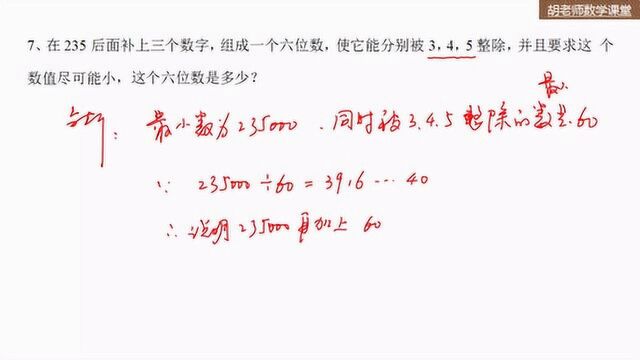 胡老师数学课堂
7、在 235 后面补上三个数字，组成一个六位数，使它能分别被 3，4，5 整除，并且要求这 个
数值尽可能小，这个六位数是多少？
最小
分析： 最小数为235000 . 同时被 3.4.5 整除的数是 60
∵ 235000÷60 = 3916 … 40
∴ 说明 235000 再加上 60